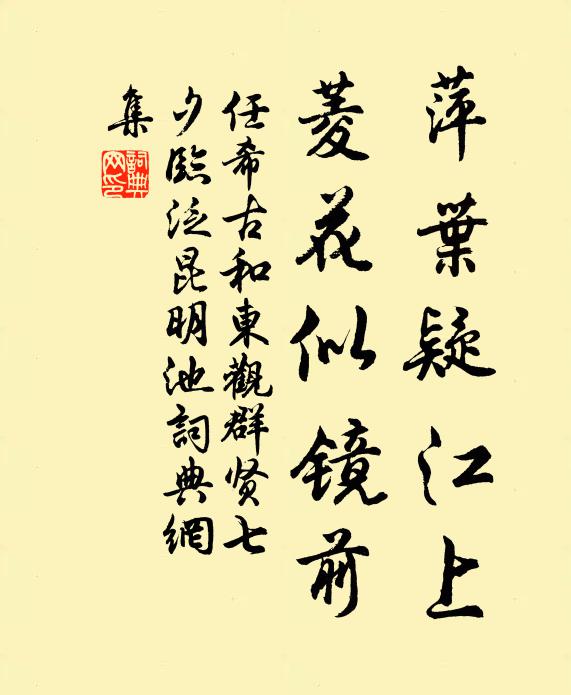 萍葉疑江上
菱花似镜前
任希古和東觀群贤七
夕臨泛昆明池詞典網
集
詞典
网印